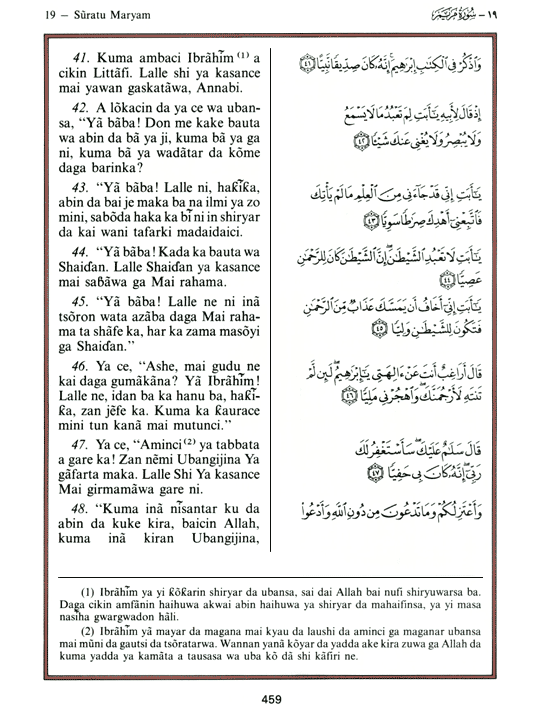 19 — Sūratu Maryam
١٩ — سُورَةُ مَرْيَم
41. Kuma ambaci Ibrãhĩm⁽¹⁾ a
cikin Littãfi. Lalle shi ya kasance
mai yawan gaskatãwa, Annabi.
42. A lõkacin da ya ce wa uban-
sa, “Yã bãba! Don me kake bauta
wa abin da bã ya ji, kuma bã ya ga
ni, kuma bã ya wadãtar da kõme
daga barinka?
43. “Yã bãba! Lalle ni, haƙĩƙa,
abin da bai je maka ba na ilmi ya zo
mini, sabõda haka ka bĩ ni in shiryar
da kai wani tafarki madaidaici.
44. “Yã bãba! Kada ka bauta wa
Shaiɗan. Lalle Shaiɗan ya kasance
mai saɓãwa ga Mai rahama.
45. “Yã bãba! Lalle ne ni inã
tsõron wata azãba daga Mai raha-
ma ta shãfe ka, har ka zama masõyi
ga Shaiɗan.”
46. Ya ce, “Ashe, mai gudu ne
kai daga gumãkãna? Yã Ibrãhĩm!
Lalle ne, idan ba ka hanu ba, haƙĩ-
ƙa, zan jẽfe ka. Kuma ka ƙaurace
mini tun kanã mai mutunci.”
47. Ya ce, “Aminci⁽²⁾ ya tabbata
a gare ka! Zan nẽmi Ubangijina Ya
gãfarta maka. Lalle Shi Ya kasance
Mai girmamãwa gare ni.
48. “Kuma inã nĩsantar ku da
abin da kuke kira, baicin Allah,
kuma inã kiran Ubangijina,
وَٱذْكُرْ فِى ٱلْكِتَٰبِ إِبْرَٰهِيمَ إِنَّهُۥ كَانَ صِدِّيقًا نَّبِيًّا ﴿٤١﴾
إِذْ قَالَ لِأَبِيهِ يَٰٓأَبَتِ لِمَ تَعْبُدُ مَا لَا يَسْمَعُ
وَلَا يُبْصِرُ وَلَا يُغْنِى عَنكَ شَيْـًٔا ﴿٤٢﴾
يَٰٓأَبَتِ إِنِّى قَدْ جَآءَنِى مِنَ ٱلْعِلْمِ مَا لَمْ يَأْتِكَ
فَٱتَّبِعْنِىٓ أَهْدِكَ صِرَٰطًا سَوِيًّا ﴿٤٣﴾
يَٰٓأَبَتِ لَا تَعْبُدِ ٱلشَّيْطَٰنَ إِنَّ ٱلشَّيْطَٰنَ كَانَ لِلرَّحْمَٰنِ
عَصِيًّا ﴿٤٤﴾
يَٰٓأَبَتِ إِنِّىٓ أَخَافُ أَن يَمَسَّكَ عَذَابٌ مِّنَ ٱلرَّحْمَٰنِ
فَتَكُونَ لِلشَّيْطَٰنِ وَلِيًّا ﴿٤٥﴾
قَالَ أَرَاغِبٌ أَنتَ عَنْ ءَالِهَتِى يَٰٓإِبْرَٰهِيمُ لَئِن لَّمْ
تَنتَهِ لَأَرْجُمَنَّكَ وَٱهْجُرْنِى مَلِيًّا ﴿٤٦﴾
قَالَ سَلَٰمٌ عَلَيْكَ سَأَسْتَغْفِرُ لَكَ
رَبِّىٓ إِنَّهُۥ كَانَ بِى حَفِيًّا ﴿٤٧﴾
وَأَعْتَزِلُكُمْ وَمَا تَدْعُونَ مِن دُونِ ٱللَّهِ وَأَدْعُوا۟
(1) Ibrãhĩm ya yi ƙõƙarin shiryar da ubansa, sai dai Allah bai nufi shiryuwarsa ba.
Daga cikin amfãnin haihuwa akwai abin haihuwa ya shiryar da mahaifinsa, ya yi masa
nasĩha gwargwadon hãli.
(2) Ibrãhĩm yã mayar da magana mai kyau da laushi da aminci ga maganar ubansa
mai mũni da gautsi da tsõratarwa. Wannan yanã kõyar da yadda ake kira zuwa ga Allah da
kuma yadda ya kamãta a tausasa wa uba kõ dã shi kãfiri ne.
459